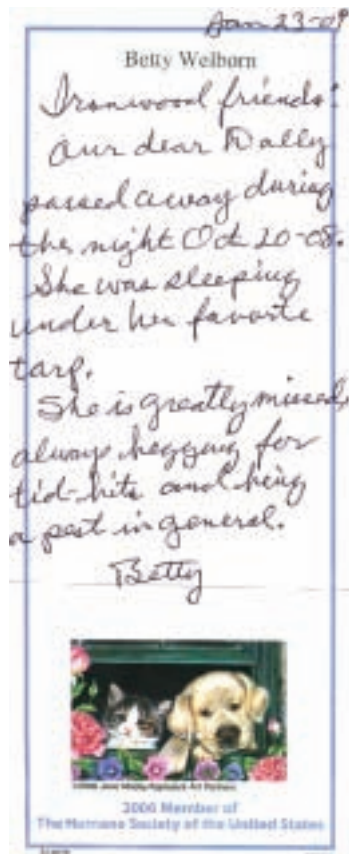 Jan 23-09
Betty Welborn
Ironwood friends:
Our dear Dolly
passed away during
the night Oct 20-08.
She was sleeping
under her favorite
tarp.
She is greatly missed,
always begging for
tid-bits and being
a pest in general.
Betty
2006 Member of
The Humane Society of the United States